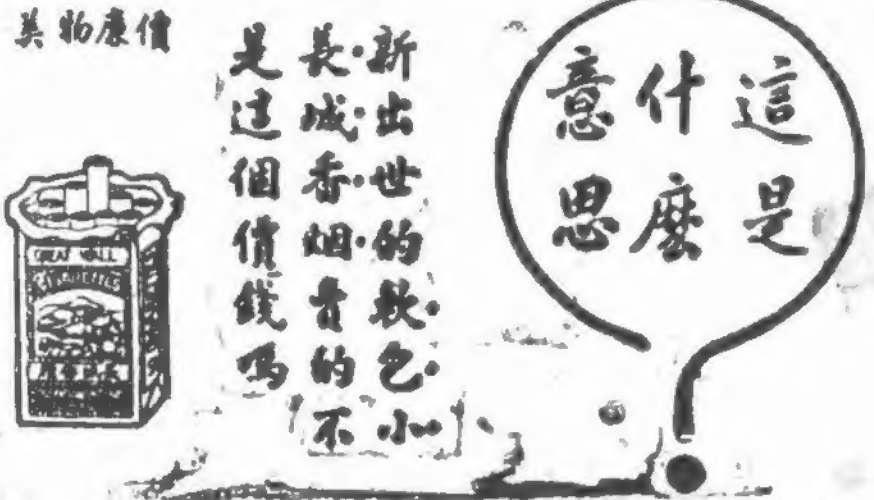 這是
什麼
意思
新出世的軟包小
長城香烟賣的不
是這個價錢嗎
價廉物美
GREAT WALL
CIGARETTES